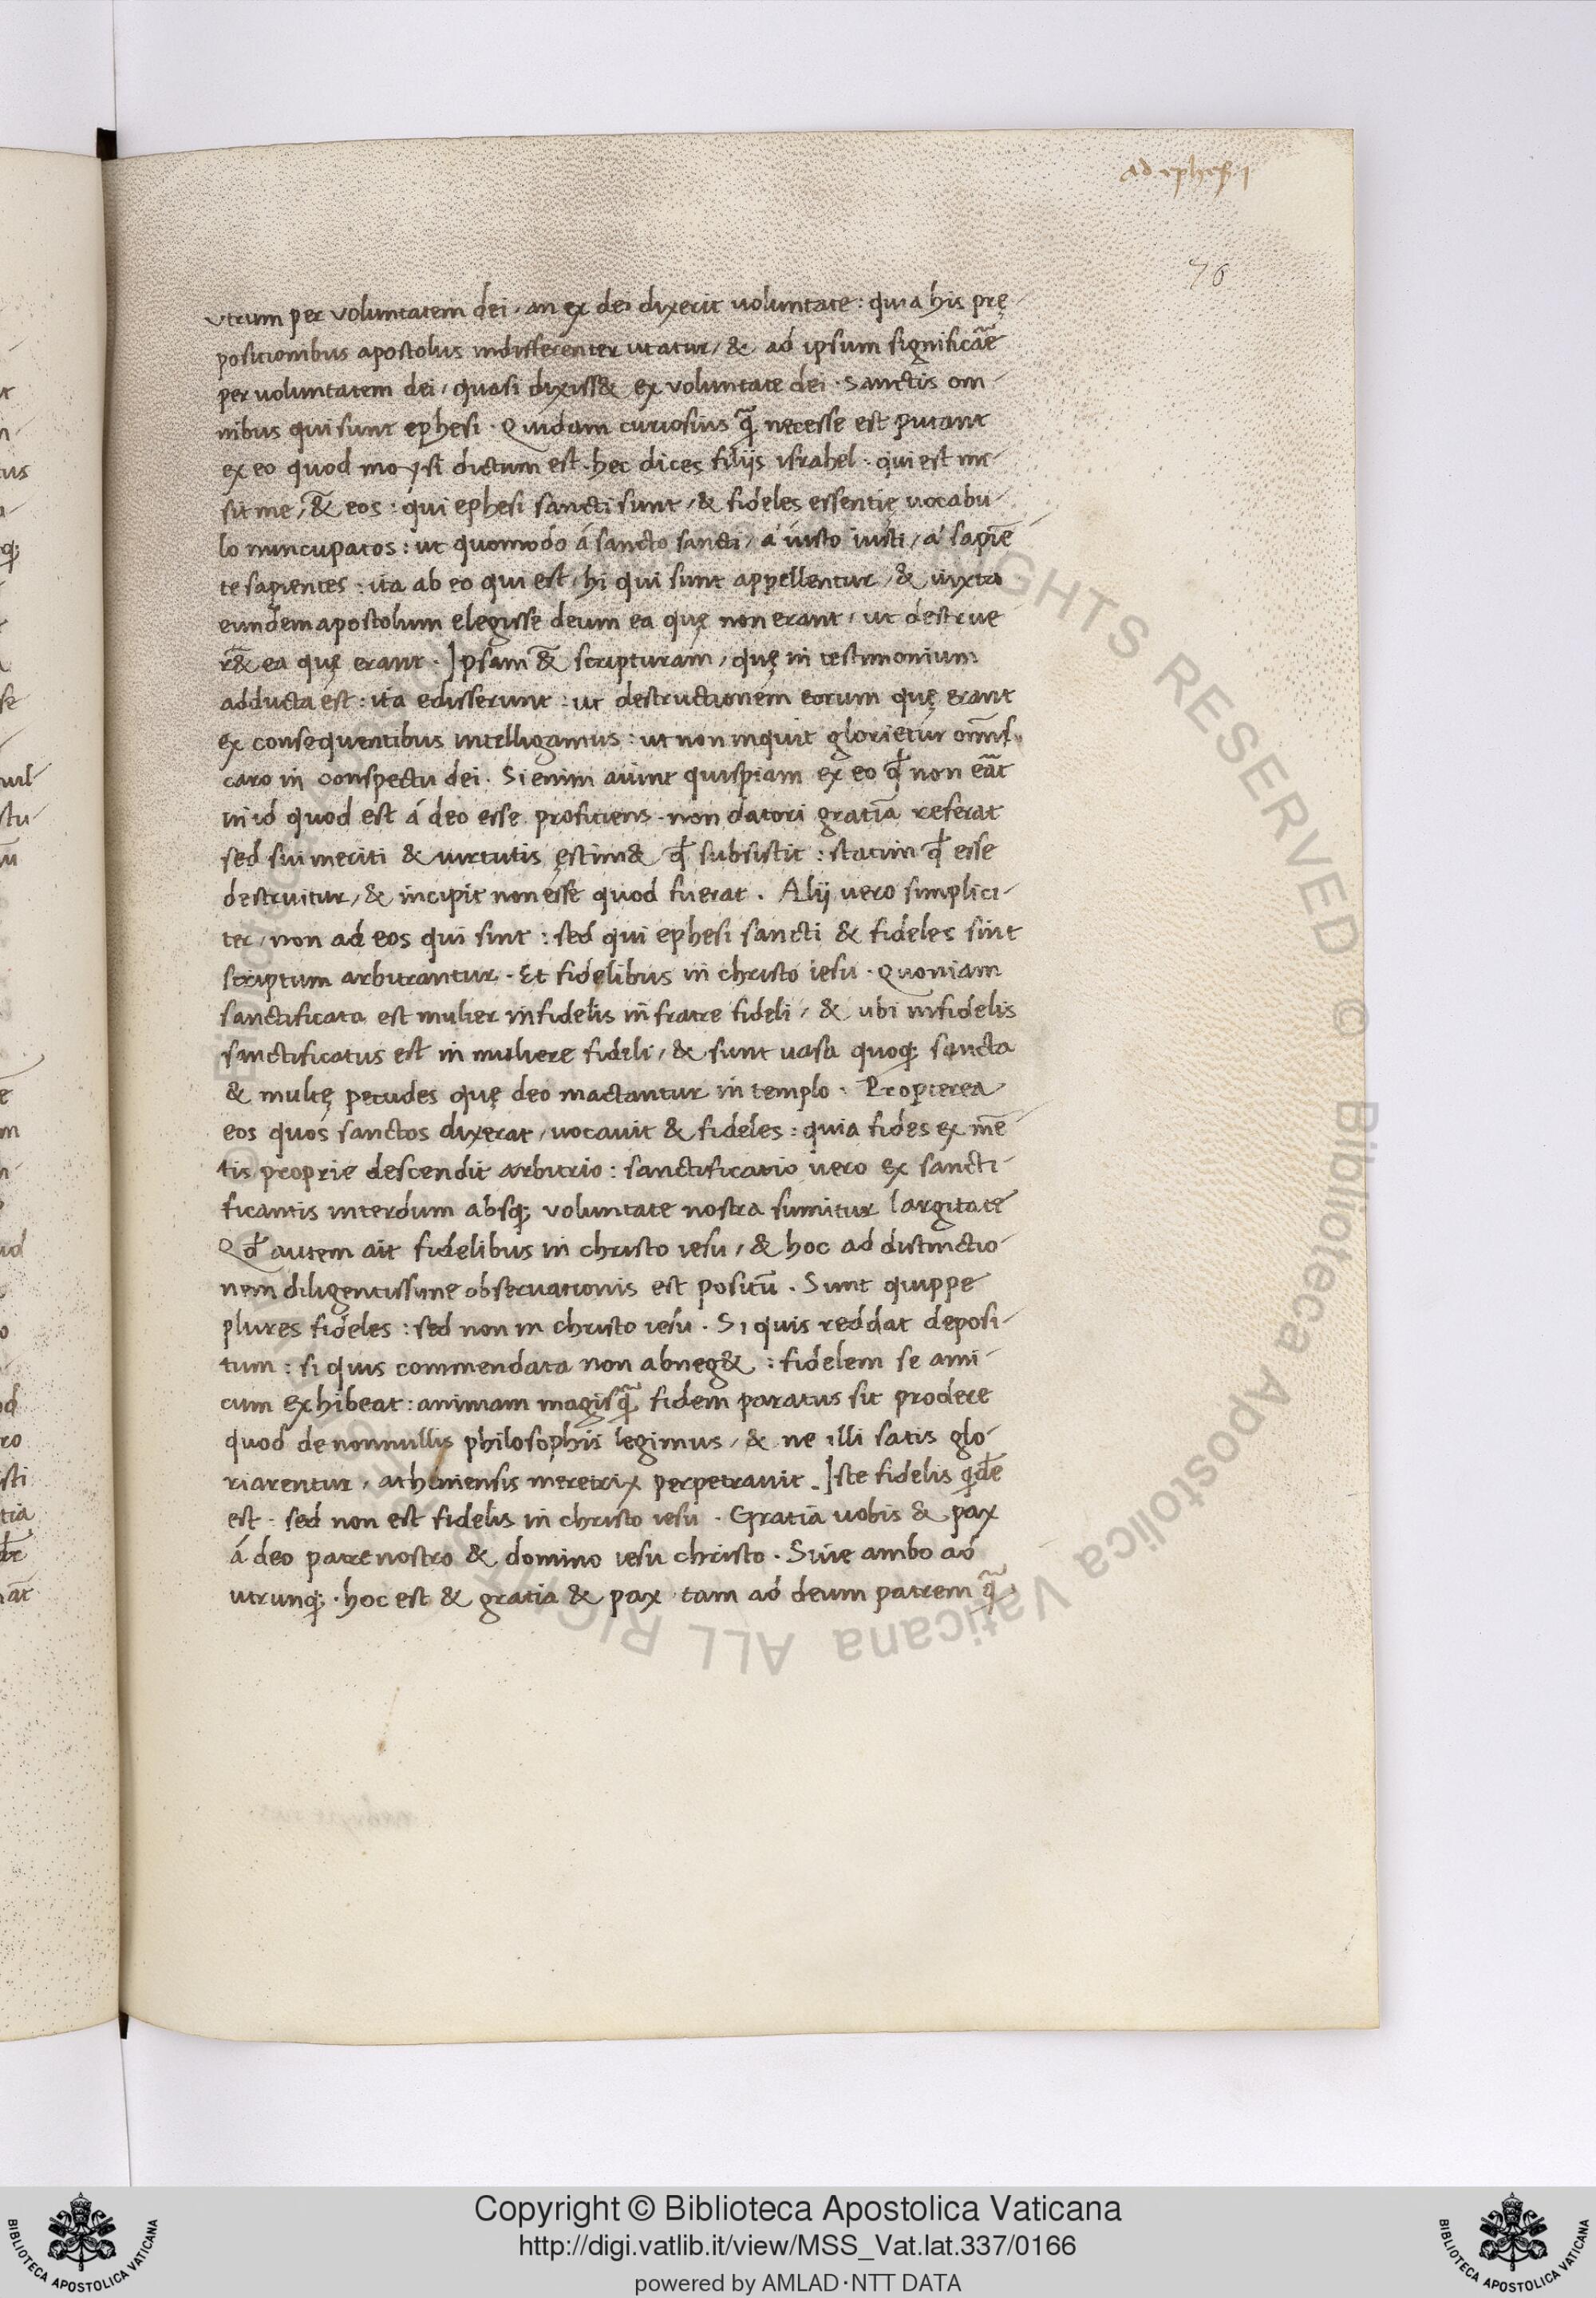 ad ephes· 1
76
vtrum per voluntatem dei, an ex dei dixerit uoluntate: quia his prę-
positionibus apostolus indifferenter utatur, & ad ipsum significãe
per uoluntatem dei, quasi dixiss& ex voluntate dei. Sanctis om-
nibus qui sunt ephesi. Quidam curiosius q̃ necesse est putant
ex eo quod moysi dictum est. hec dices filijs israhel. qui est mi-
sit me, &̃ eos: qui ephesi sancti sunt, & fideles essentię uocabu-
lo nuncupatos: ut quomodo á sancto sancti, a' iusto iusti, a' sapiẽ
te sapientes: ita ab eo qui est, hi qui sunt appellentur, & iuxta
eundem apostolum elegisse deum ea quę non erant, ut destrue
r&̃ ea quę erant. Ipsam &̃ scripturam, quę in testimonium
adducta est: ita edisserunt: ut destructionem eorum quę erant
ex consequentibus intelligamus: ut non inquit glorietur om̃is
caro in conspectu dei. Si enim aiunt quispiam ex eo qđ non eãt
in id quod est á deo esse proficiens. non datori gratiã referat
sed sui meriti & uirtutis ęstim& qđ subsistit: statim qđ esse
destruitur, & incipit non esse quod fuerat. Alij uero simplici-
ter, non ad eos qui sint: sed qui ephesi sancti & fideles sint
scriptum arbitrantur. Et fidelibus in christo iesu. Quoniam
sanctificata est mulier infidelis in fratre fideli, & ubi infidelis
sanctificatus est in muliere fideli, & sunt uasa quoq; sancta
& multę pecudes quę deo mactantur in templo. Propterea
eos quos sanctos dixerat, uocauit & fideles: quia fides ex mẽ
tis proprie descendit arbitrio: sanctificatio uero ex sancti-
ficantis interdum absq; voluntate nostra sumitur largitate
Qđ autem ait fidelibus in christo iesu, & hoc ad distinctio-
nem diligentissime obseruationis est positũ. Sunt quippe
plures fideles: sed non in christo iesu. Si quis reddat deposi-
tum: si quis commendata non abneg&: fidelem se ami-
cum exhibeat: animam magis q̃ fidem paratus sit prodere
quod de nonnullis philosophis legimus, & ne illi satis glo-
riarentur, atheniensis meretrix perpetrauit. Iste fidelis qđe
est. sed non est fidelis in christo iesu. Gratia uobis & pax
á deo patre nostro & domino iesu christo. Siue ambo ad
utrunq;. hoc est & gratia & pax tam ad deum patrem q̃
Copyright © Biblioteca Apostolica Vaticana
http://digi.vatlib.it/view/MSS_Vat.lat.337/0166
powered by AMLAD·NTT DATA